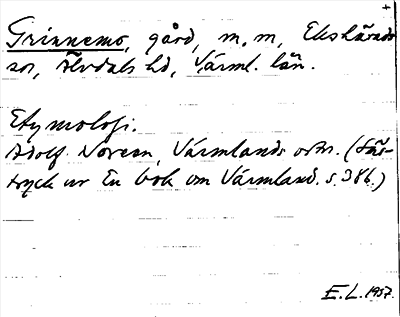 +
Grinnemo, gård, m, m, Ekshärads
sn, Älvdals hd, Värml. län.
Etymologi.
Adolf Noreen, Värmlands ortn. (Sär-
tryck ur En bok om Värmland. s. 386.)
E.L. 1957.